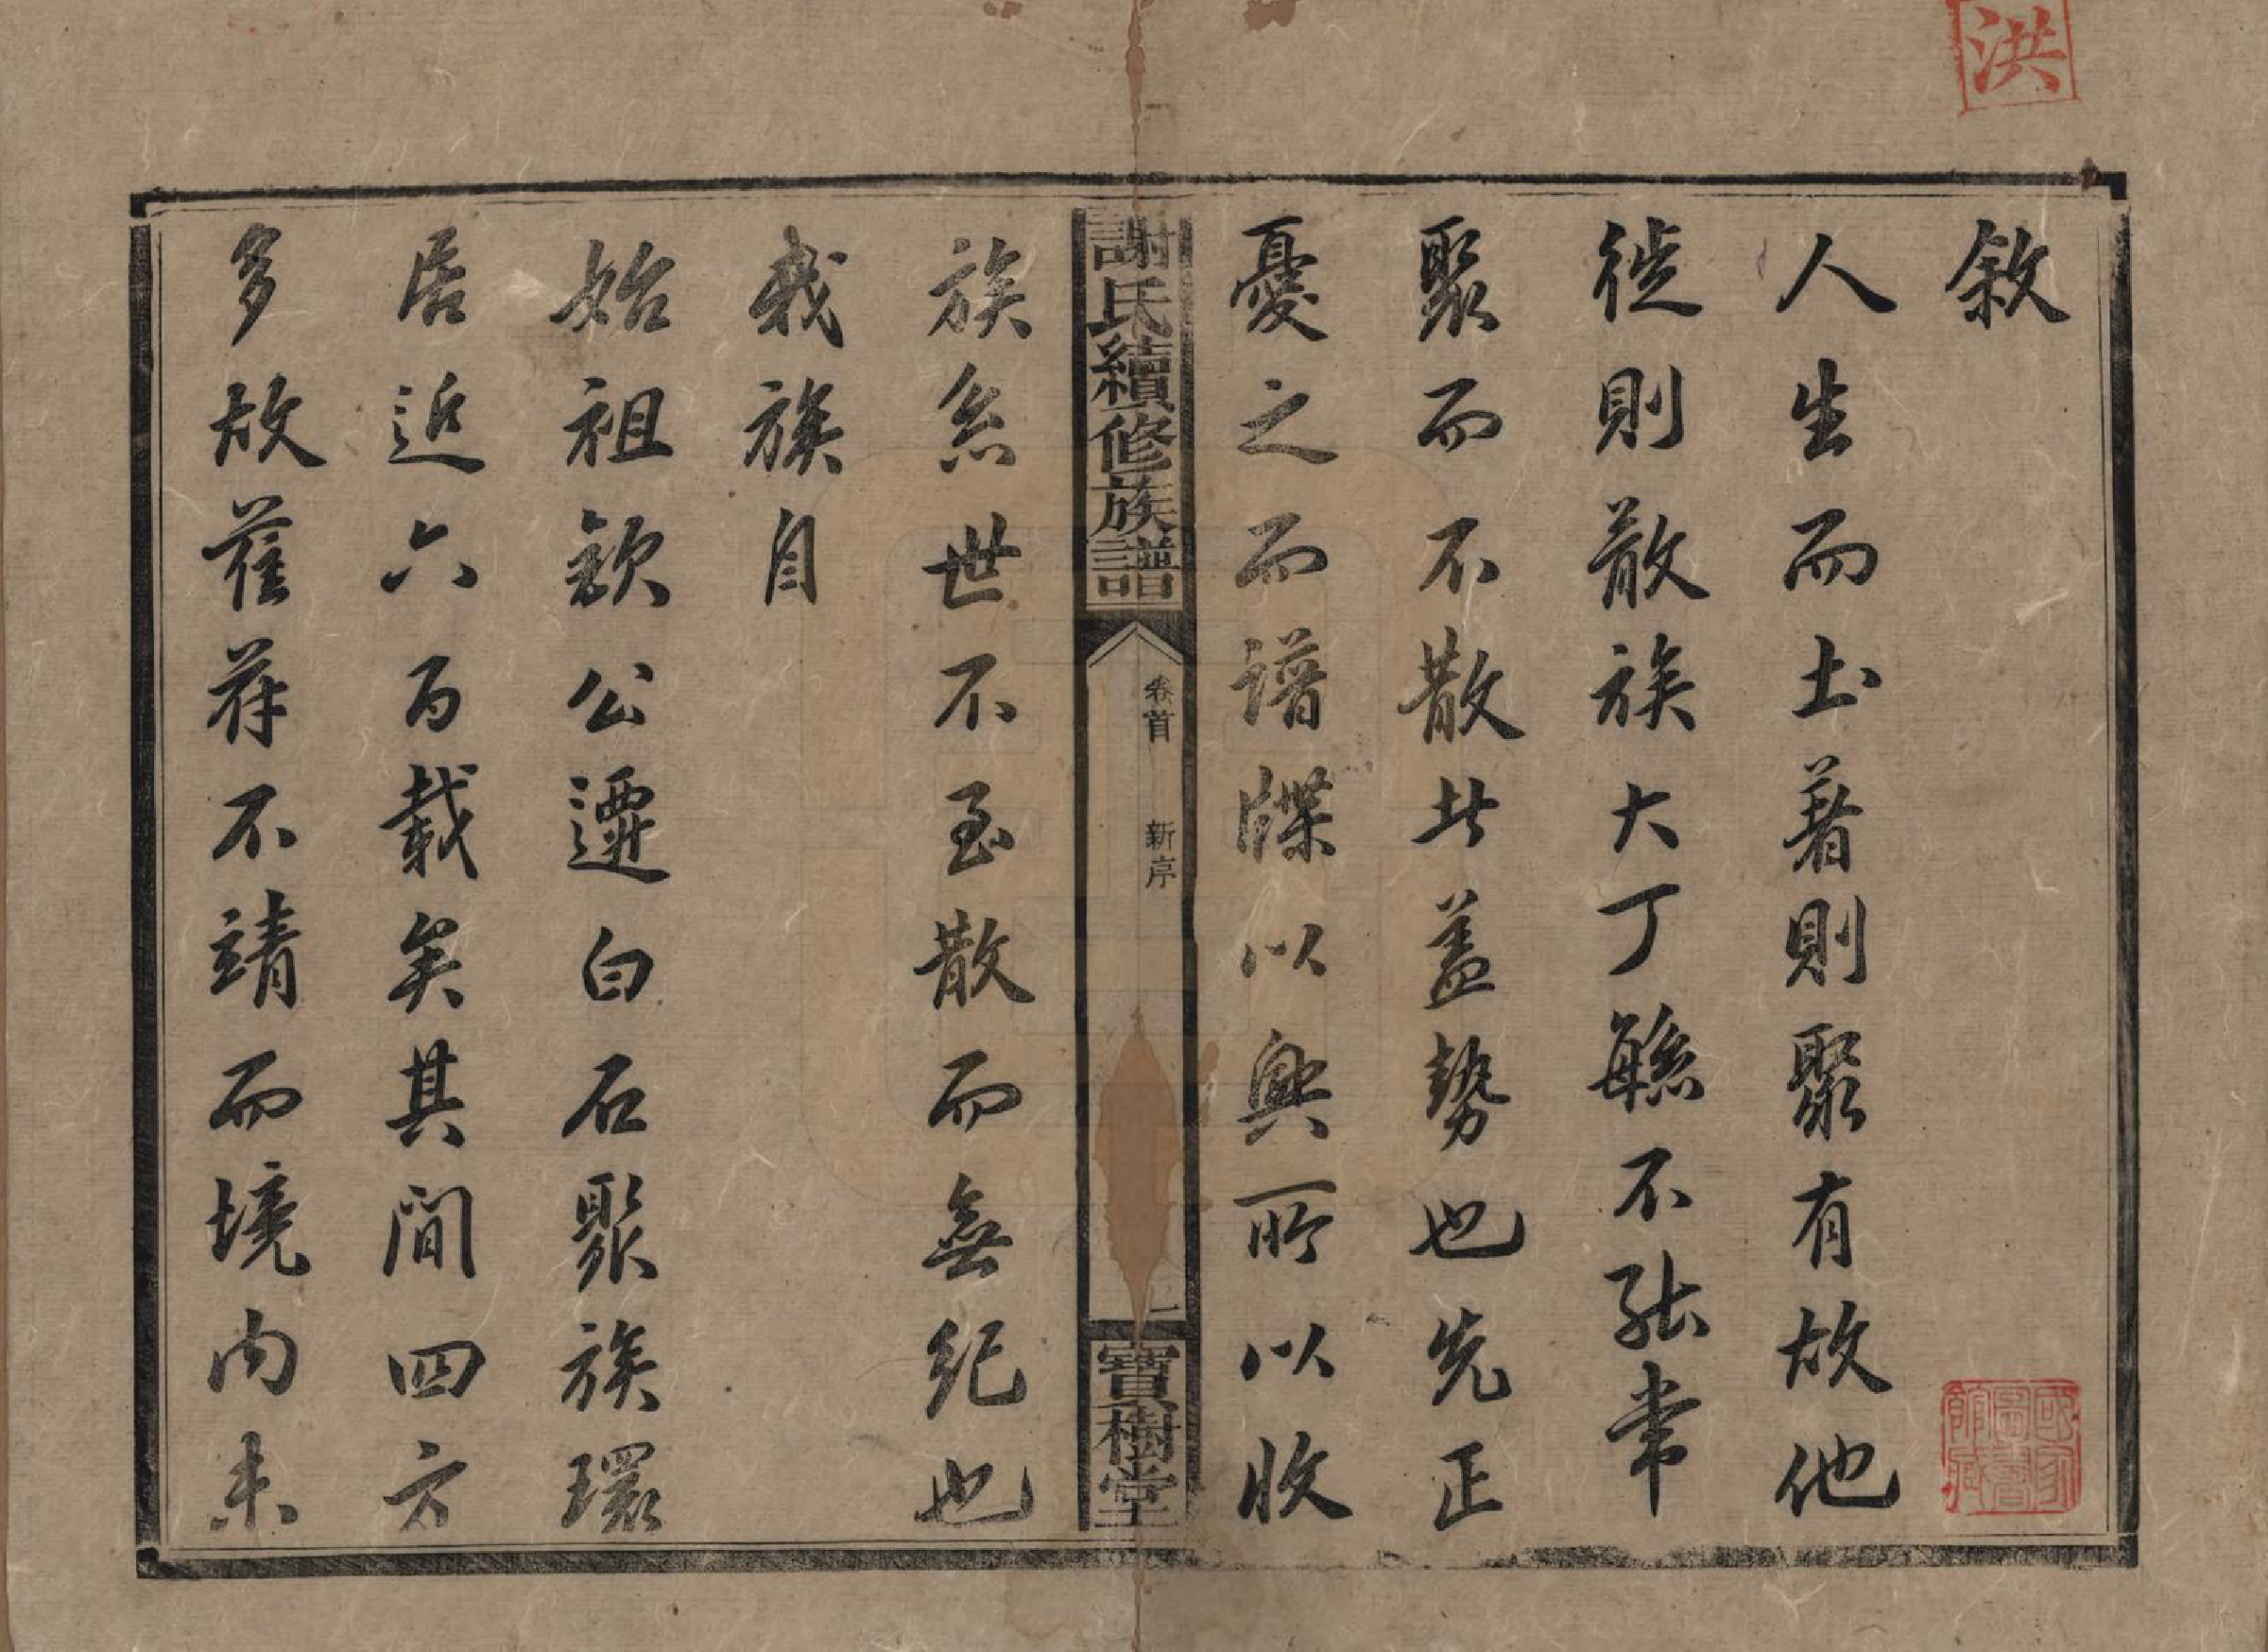 洪
敘
人生而土著則聚有故他
徙則散族大丁繇不能常
聚而不散此蓋勢也先正
憂之而譜牒以興所以收
謝氏續修族譜
卷首 新序
一
寶樹堂
族系世不至散而無紀也
我族自
始祖欽公遷白石聚族環
居近六百載矣其間四方
多故萑苻不靖而境內未
國家圖書館藏